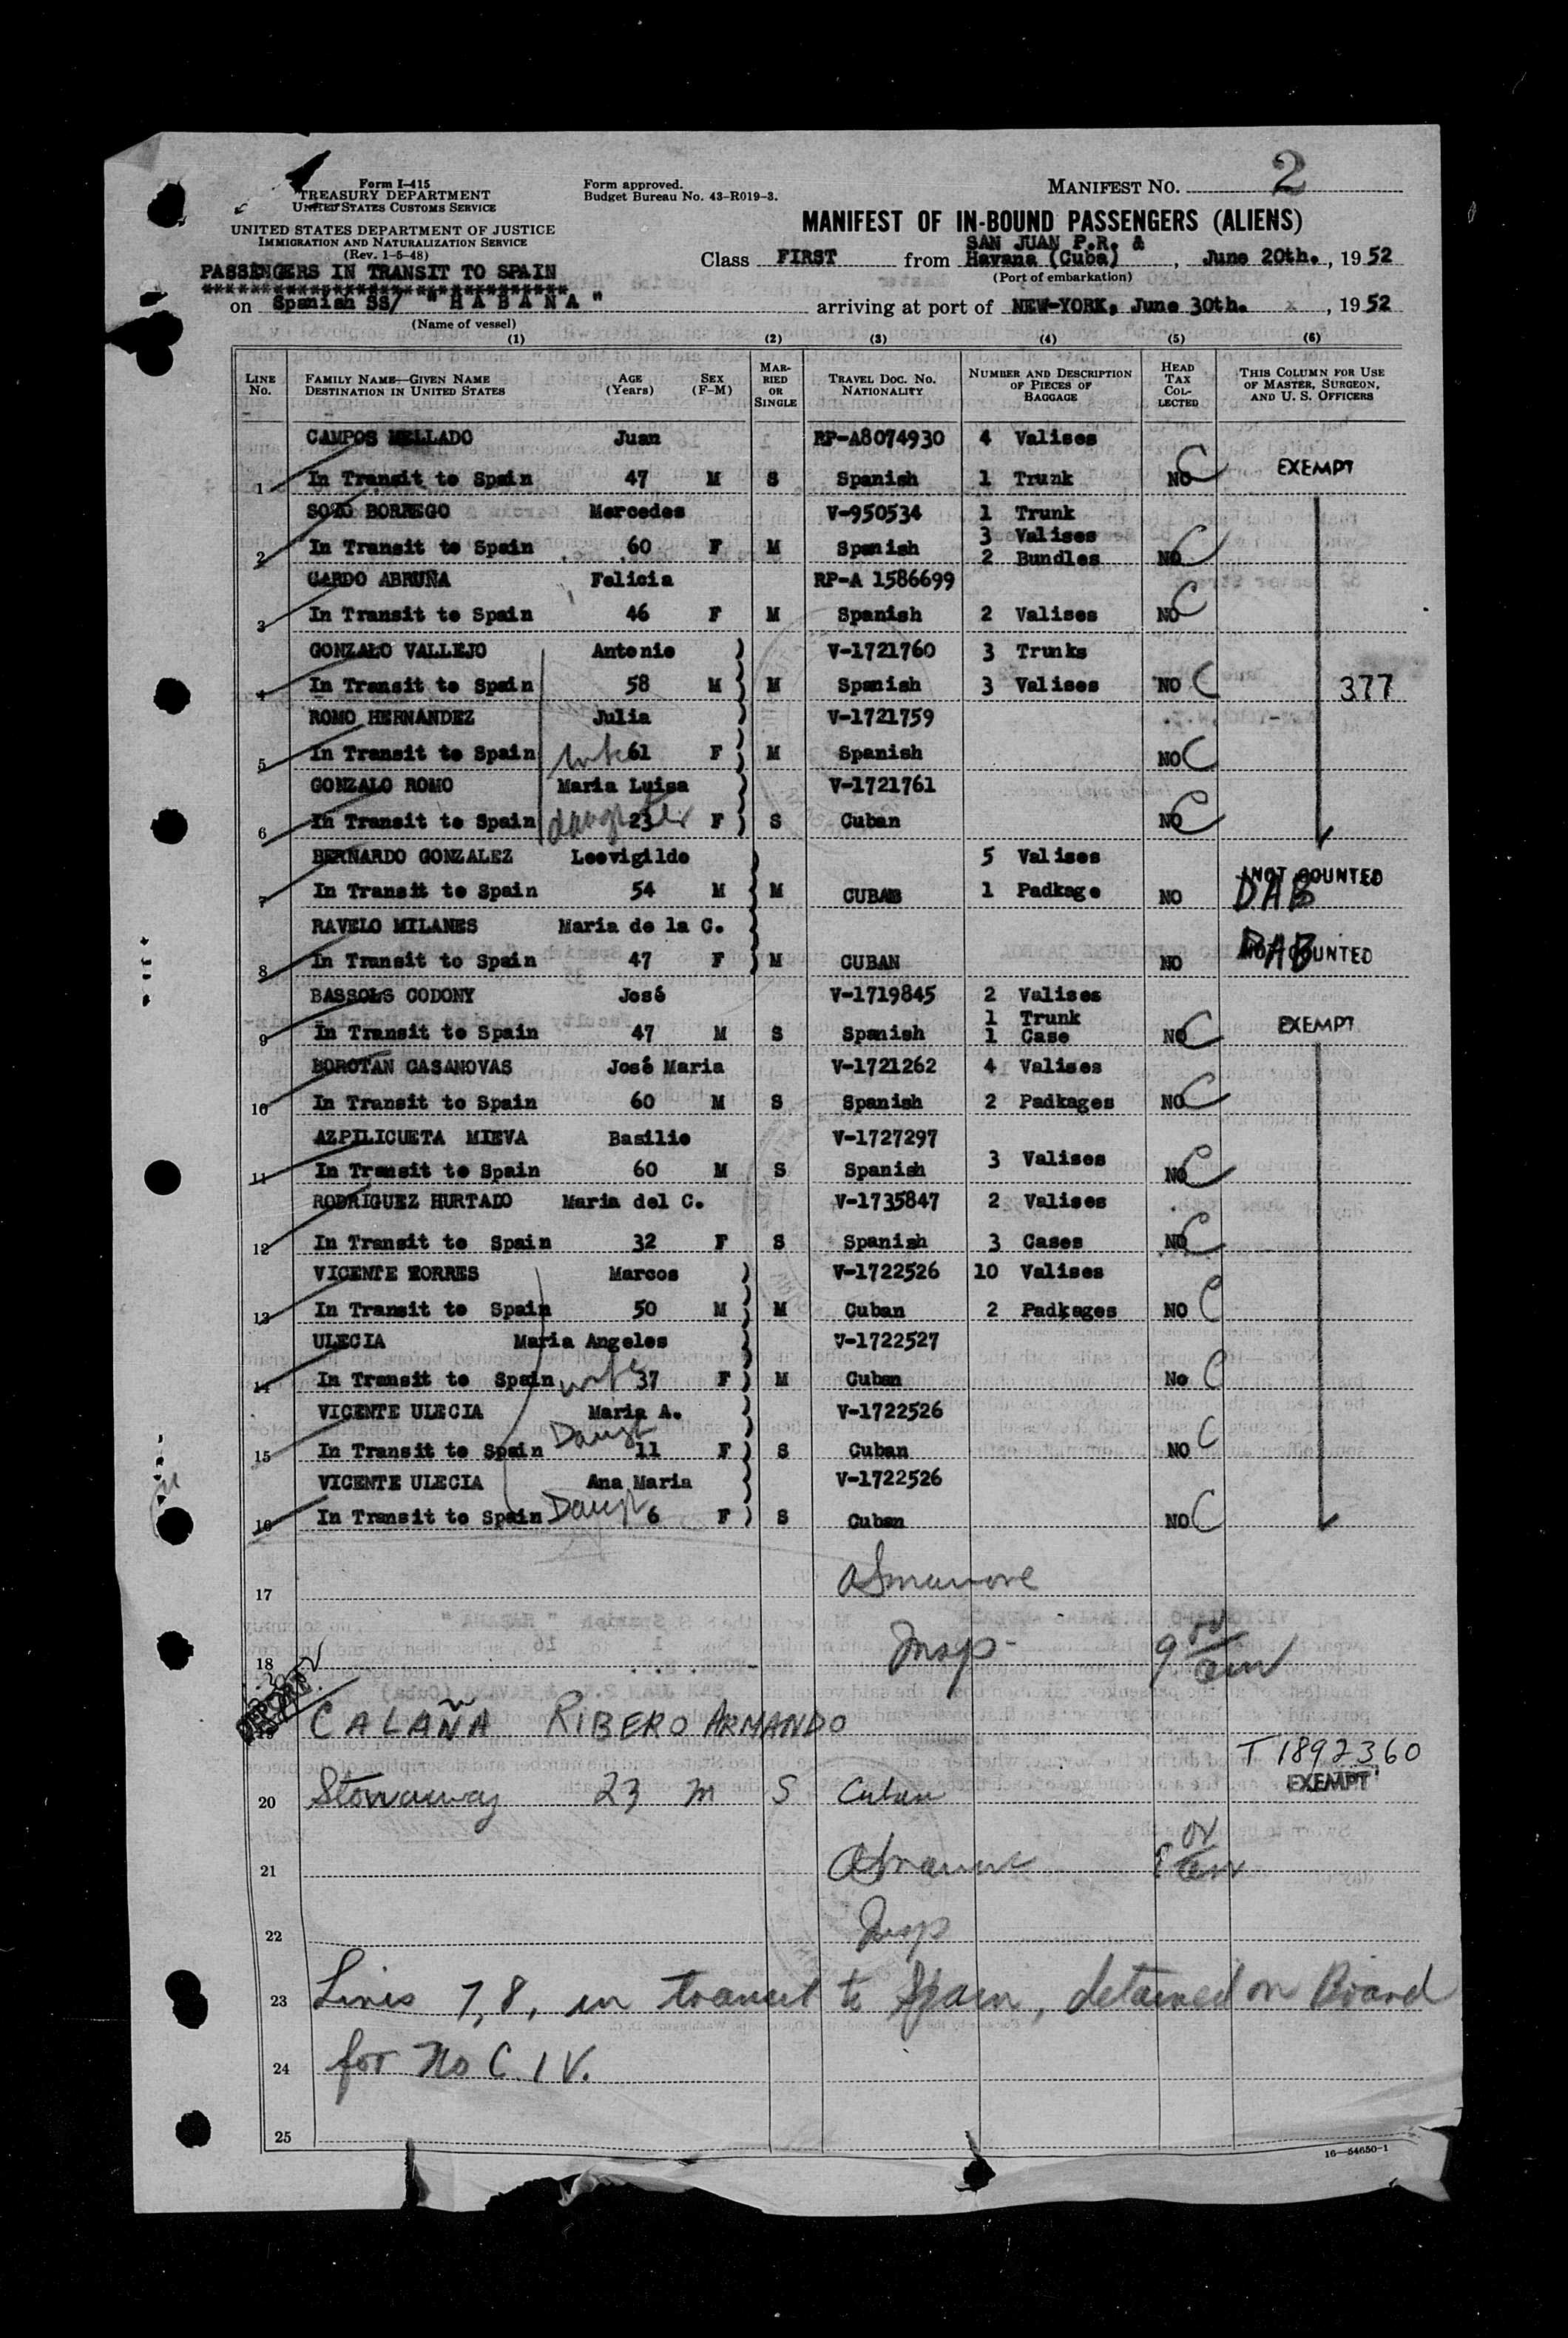 Form I-415
TREASURY DEPARTMENT
UNITED STATES CUSTOMS SERVICE
UNITED STATES DEPARTMENT OF JUSTICE
IMMIGRATION AND NATURALIZATION SERVICE
(Rev. 1-5-48)
Form approved.
Budget Bureau No. 43-R019-3.
MANIFEST NO. 2
MANIFEST OF IN-BOUND PASSENGERS (ALIENS)
SAN JUAN P.R. &
Class FIRST from Havana (Cuba), June 20th., 1952
(Port of embarkation)
PASSENGERS IN TRANSIT TO SPAIN
on Spanish SS/ "HABANA" arriving at port of NEW-YORK, June 30th. x, 1952
(Name of vessel)
(1) (2) (3) (4) (5) (6)
LINE NO. FAMILY NAME—GIVEN NAME DESTINATION IN UNITED STATES AGE (Years) SEX (F-M) MARRIED OR SINGLE TRAVEL DOC. NO. NATIONALITY NUMBER AND DESCRIPTION OF PIECES OF BAGGAGE HEAD TAX COLLECTED THIS COLUMN FOR USE OF MASTER, SURGEON, AND U. S. OFFICERS
CAMPOS MELLADO Juan RP-A8074930 4 Valises
1 In Transit to Spain 47 M S Spanish 1 Trunk NO C EXEMPT
SOTO BORREGO Mercedes V-950534 1 Trunk
3 Valises
2 In Transit to Spain 60 F M Spanish 2 Bundles NO C
GARDO ABRUÑA Felicia RP-A 1586699
3 In Transit to Spain 46 F M Spanish 2 Valises NO C
GONZALO VALLEJO Antonio V-1721760 3 Trunks
4 In Transit to Spain 58 M M Spanish 3 Valises NO C 377
ROMO HERNANDEZ Julia V-1721759
5 In Transit to Spain wife 61 F M Spanish NO C
GONZALO ROMO Maria Luisa V-1721761
6 In Transit to Spain daughter 23 F S Cuban NO C
BERNARDO GONZALEZ Leovigildo 5 Valises
7 In Transit to Spain 54 M M CUBAN 1 Padkage NO NOT COUNTED DAB
RAVELO MILANES Maria de la C.
8 In Transit to Spain 47 F M CUBAN NO NOT COUNTED DAB
BASSOLS CODONY José V-1719845 2 Valises
1 Trunk
9 In Transit to Spain 47 M S Spanish 1 Case NO C EXEMPT
BOROTAN CASANOVAS José Maria V-1721262 4 Valises
10 In Transit to Spain 60 M S Spanish 2 Padkages NO C
AZPILICUETA MIEVA Basilio V-1727297
11 In Transit to Spain 60 M S Spanish 3 Valises NO C
RODRIGUEZ HURTADO Maria del C. V-1735847 2 Valises
12 In Transit to Spain 32 F S Spanish 3 Cases NO C
VICENTE TORRES Marcos V-1722526 10 Valises
13 In Transit to Spain 50 M M Cuban 2 Padkages NO C
ULECIA Maria Angeles V-1722527
14 In Transit to Spain wife 37 F M Cuban No C
VICENTE ULECIA Maria A. V-1722526
15 In Transit to Spain Daugt 11 F S Cuban NO C
VICENTE ULECIA Ana Maria V-1722526
16 In Transit to Spain Daugt 6 F S Cuban NO C
17
18 Insp 9 00 am
19 CALAÑA RIBERO ARMANDO
T 1892360
20 Stowaway 23 m S Cuban EXEMPT
21 am
22 Insp
23 Lines 7, 8, in transit to Spain, detained on Board
24 for No C. I V.
25
16—54650-1